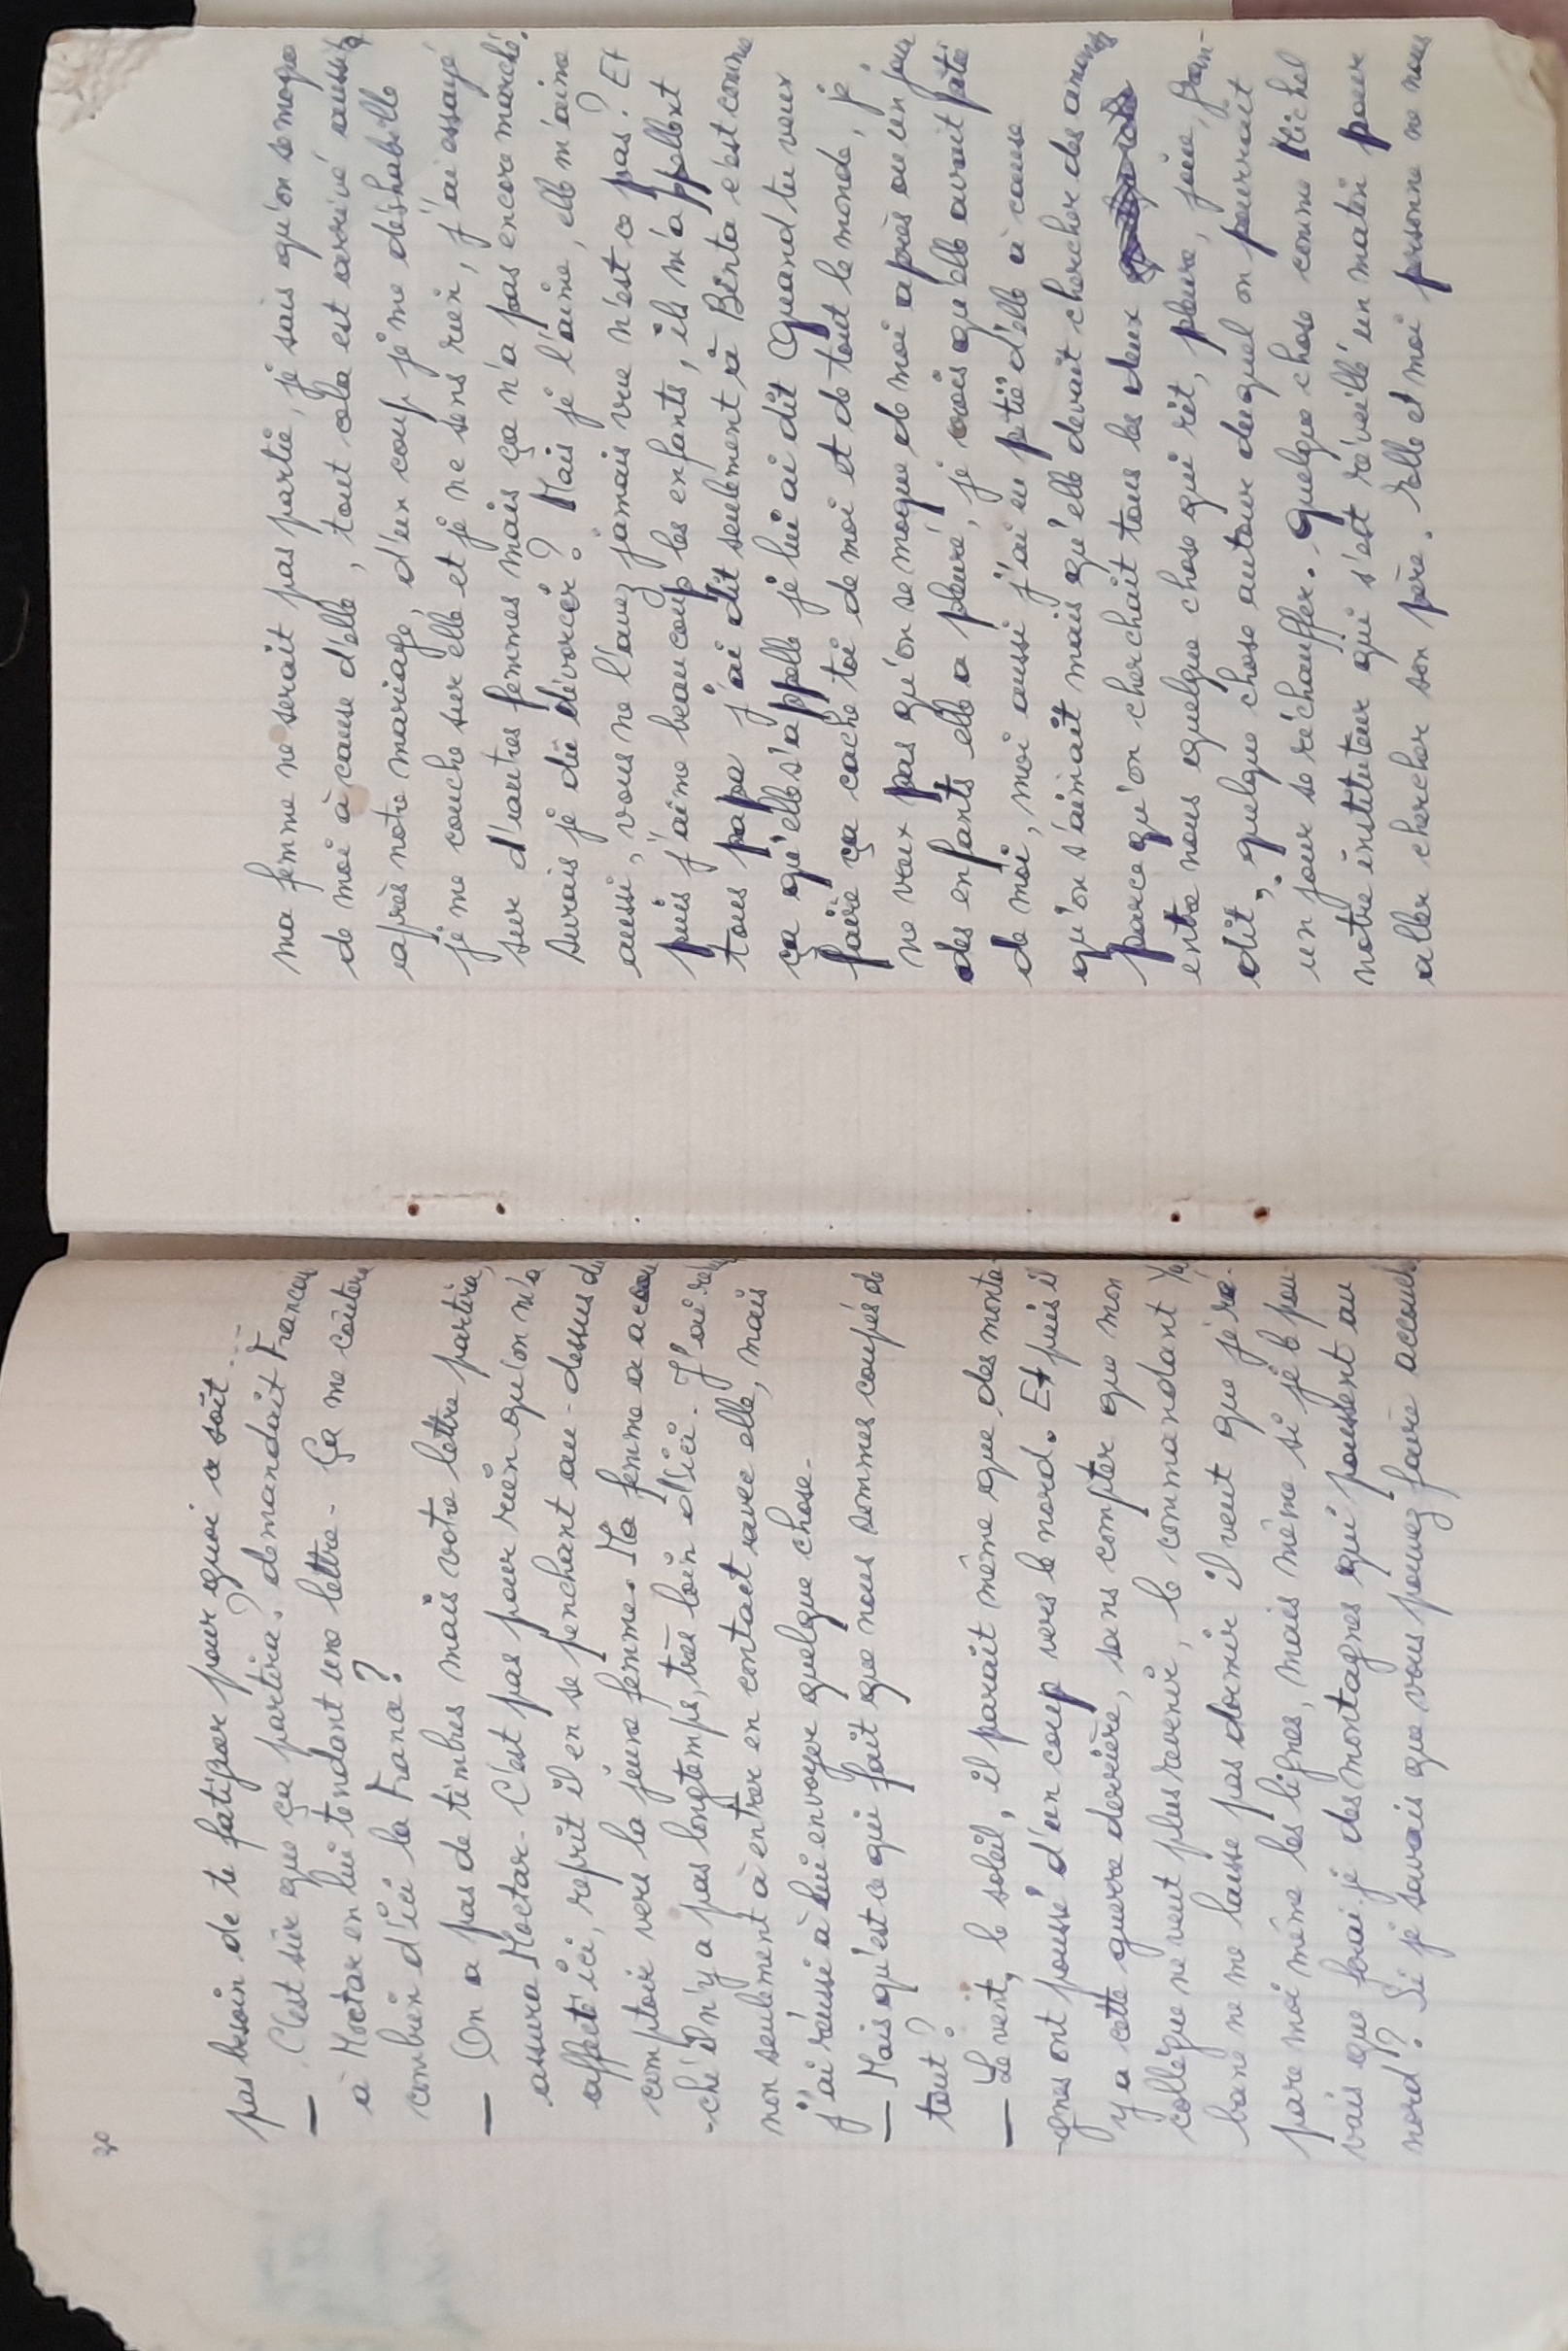 30
pas besoin de te fatiguer pour quoi ce soit...
— C'est sûr que ça partira? demandait
à Moctar en lui tendant une lettre - Ça me coûtera
combien d'ici la France?
— On a pas de timbres mais votre lettre partira,
assura Moctar - C'est pas pour rien qu'on m'a
affecté ici, reprit il en se penchant au-dessus du
comptoir vers la jeune femme. Ma femme a accou
-ché il n'y a pas longtemps, très loin d'ici. J'ai
non seulement à entrer en contact avec elle, mais
j'ai réussi à lui envoyer quelque chose-
— Mais qu'est ce qui fait que nous sommes coupés de
tout?
— Le vent, le soleil, il parait même que des monta-
-gnes ont poussé d'un coup vers le nord. Et puis il
y a cette guerre derrière, sans compter que mon
collègue ne veut plus revenir, le commandant
bane ne me laisse pas dormir il veut que je ré-
pare moi même les lignes, mais même si je le pou
vais que ferai-je des montagnes qui poussent au
nord? Si je savais que vous pouvez faire
ma femme ne serait pas partie, je sais qu'on se moque
de moi à cause d'elle, tout cela est arrivé aussitôt
après notre mariage, d'un coup je me déshabille
je me couche sur elle et je ne sens rien, j'ai essayé
sur d'autres femmes mais ça n'a pas encore marché.
Aurais je dû divorcer? Mais je l'aime, elle m'aime
aussi, vous ne l'avez jamais vue n'est ce pas? Et
puis j'aime beaucoup les enfants, ils m'appellent
tous papa j'ai dit seulement à Binta c'est comme
ça qu'elle s'appelle je lui ai dit quand tu veux
faire ça cache toi de moi et de tout le monde, je
ne veux pas qu'on se moque de moi après ou un jour
des enfants elle a pleuré, je crois qu'elle avait pitié
de moi, moi aussi j'ai eu pitié d'elle à cause
qu'on s'aimait mais qu'elle devait chercher des amants
parce qu'on cherchait tous les deux
entre nous quelque chose qui rit, pleure, joue, gran-
dit, quelque chose autour duquel on pourrait
un jour se réchauffer. Quelque chose comme Michel
notre instituteur qui s'est réveillé un matin pour
aller chercher son père. Elle et moi personne ne nous